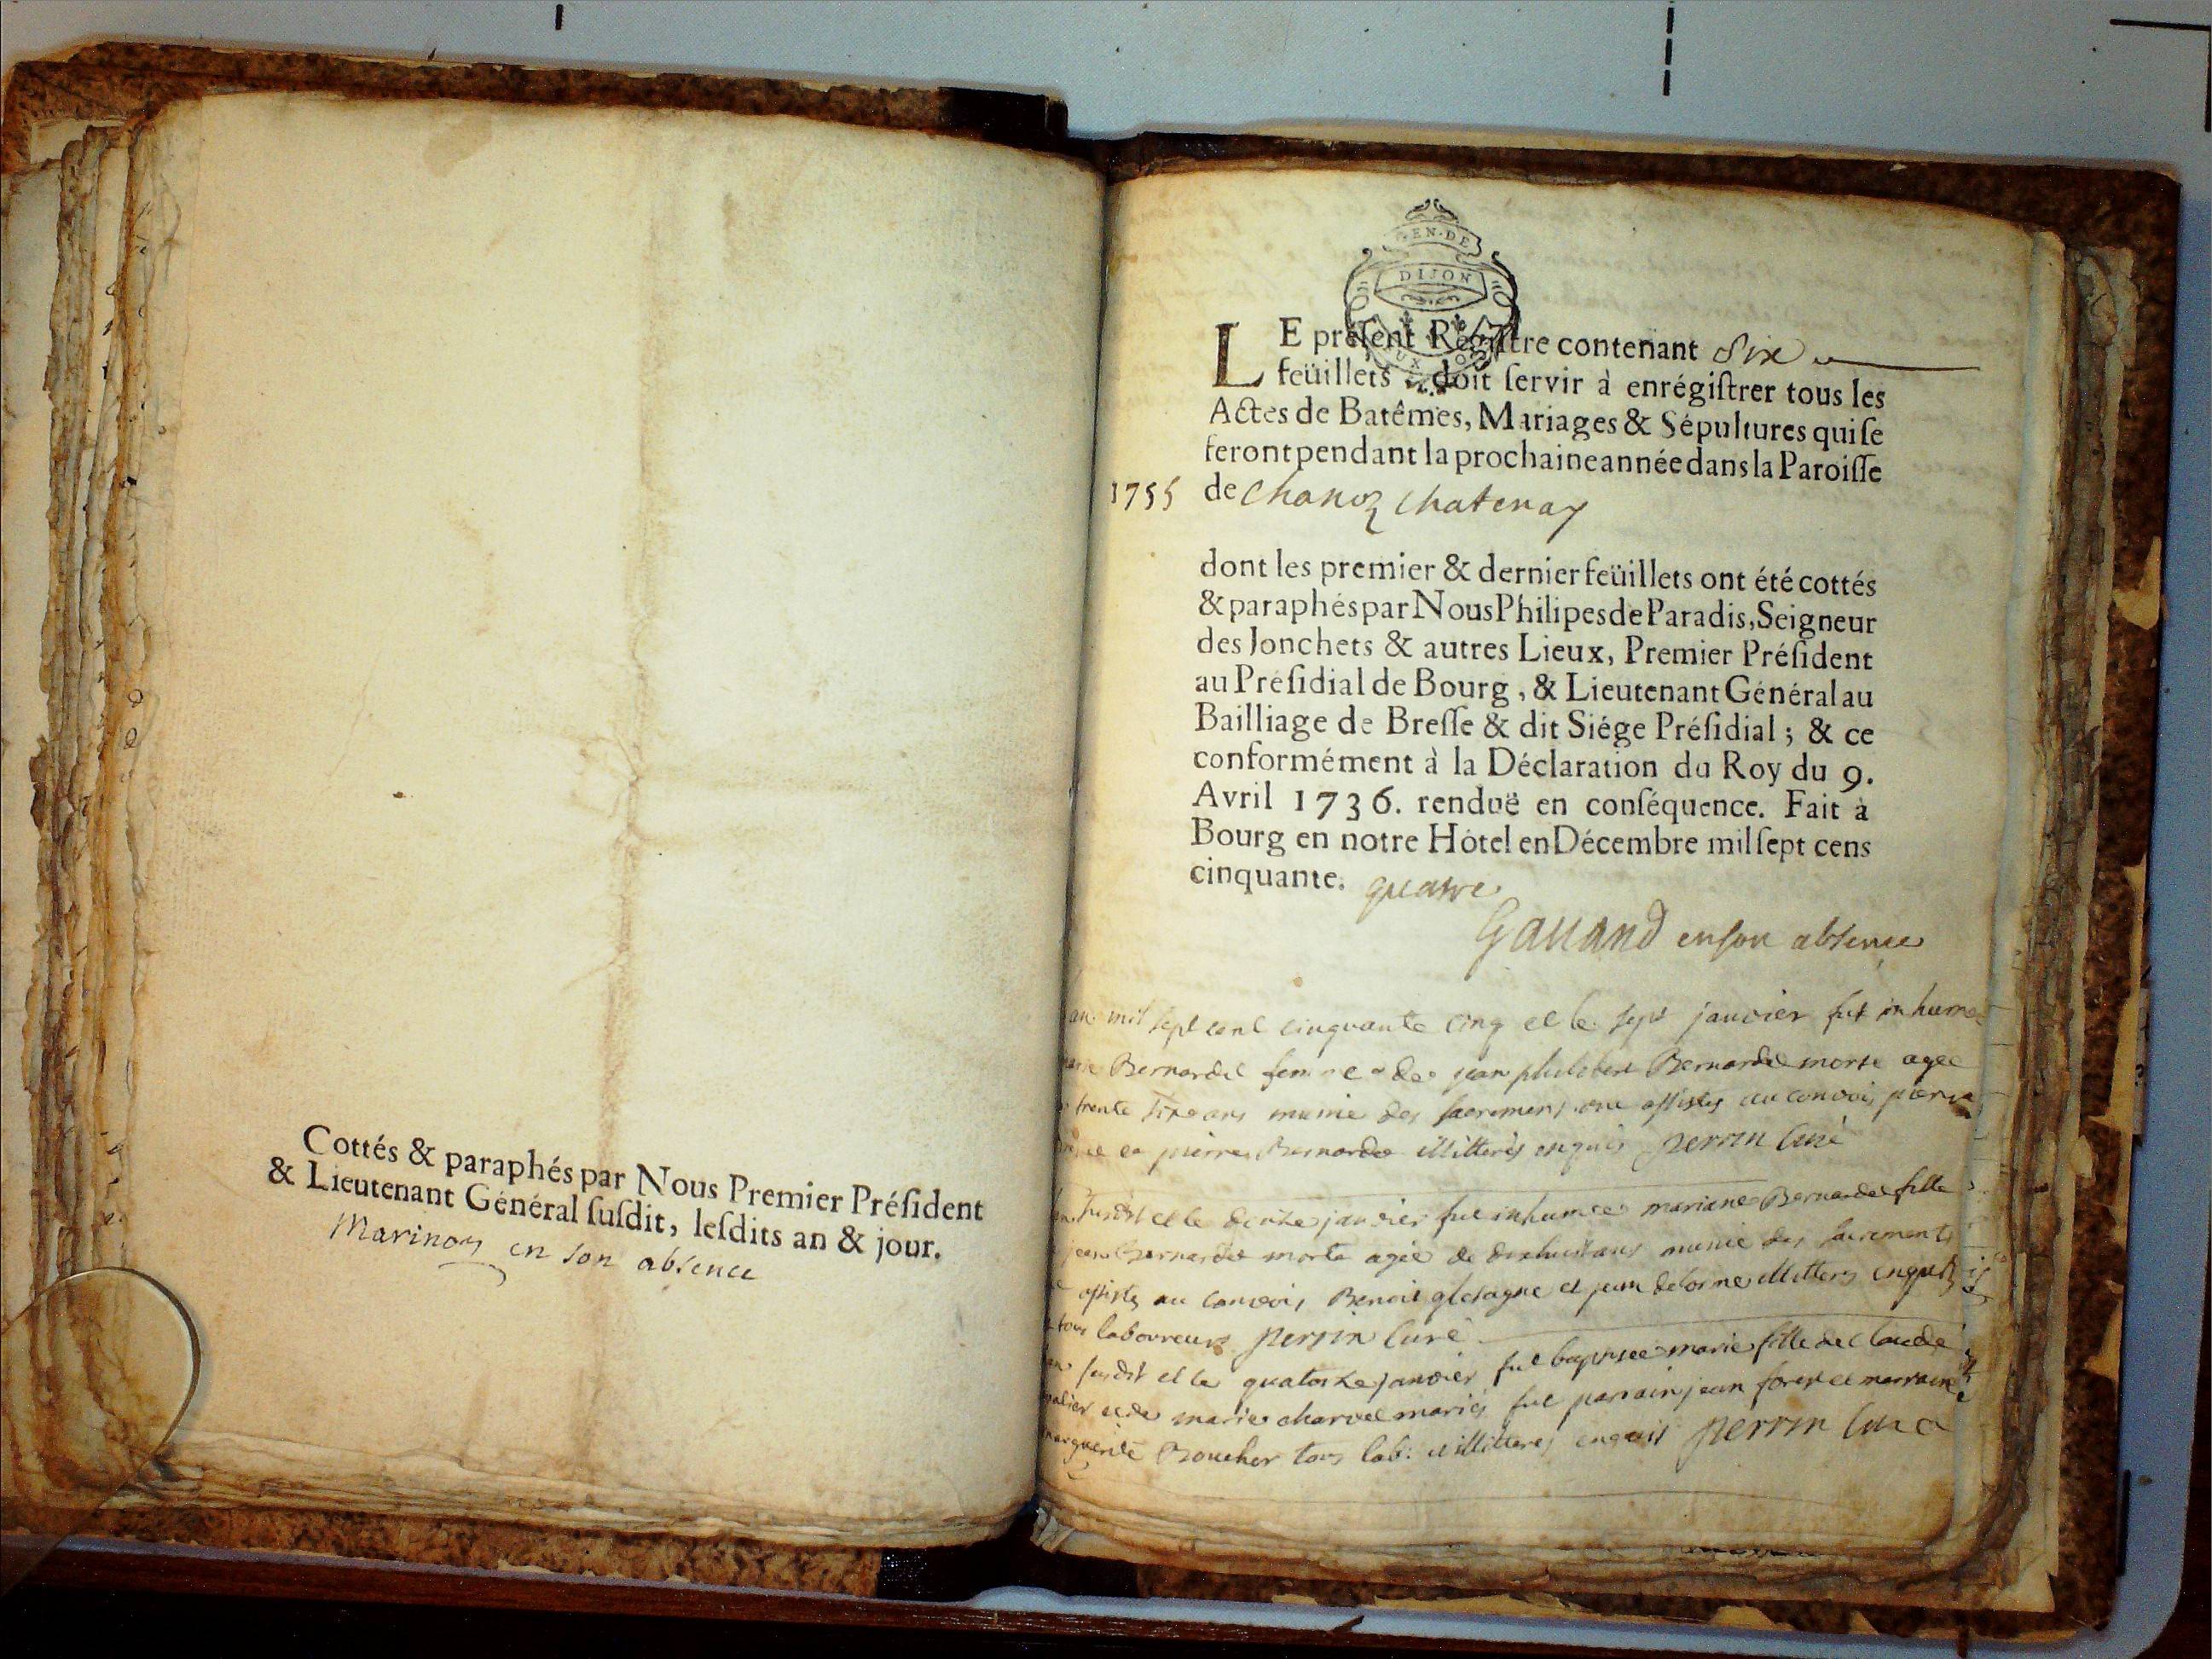 Cottés & paraphés par Nous Premier Président
& Lieutenant Général ſuſdit, leſdits an & jour.
en son absence
GEN. DE
DIJON
LE préſent Régiſtre contenant Six
feüillets doit ſervir à enrégiſtrer tous les
Actes de Batêmes, Mariages & Sépultures qui ſe
feront pendant la prochaine année dans la Paroiſſe
1755 de Chanoz Chatenay
dont les premier & dernier feüillets ont été cottés
& paraphés par Nous Philipes de Paradis, Seigneur
des Jonchets & autres Lieux, Premier Préſident
au Préſidial de Bourg, & Lieutenant Général au
Bailliage de Breſſe & dit Siége Préſidial ; & ce
conformément à la Déclaration du Roy du 9.
Avril 1736. renduë en conſéquence. Fait à
Bourg en notre Hôtel en Décembre mil ſept cens
cinquante. quatre
en son absence
an mil sept cent cinquante cinq et le sept janvier fut inhumée
Bernardet femme de jean philibert Bernardet morte agée
trente six ans munie des sacremens ont assistes au convois pierre
et pierre Bernardet illitterés enquis perrin curé
susdit et le douze janvier fut inhumée mariane Bernardet fille
jean Bernardet morte agée de dixhuit ans munie des sacrements
assistes au convois Benoit et jean delorme illitterés enquis
tous laboureurs perrin curé
susdit et le quatorze janvier fut baptisée marie fille de claude
et de marie charvet mariés fut parrain jean foret et marraine
marguerite Boucher tous lab: illitterés enquis perrin curé